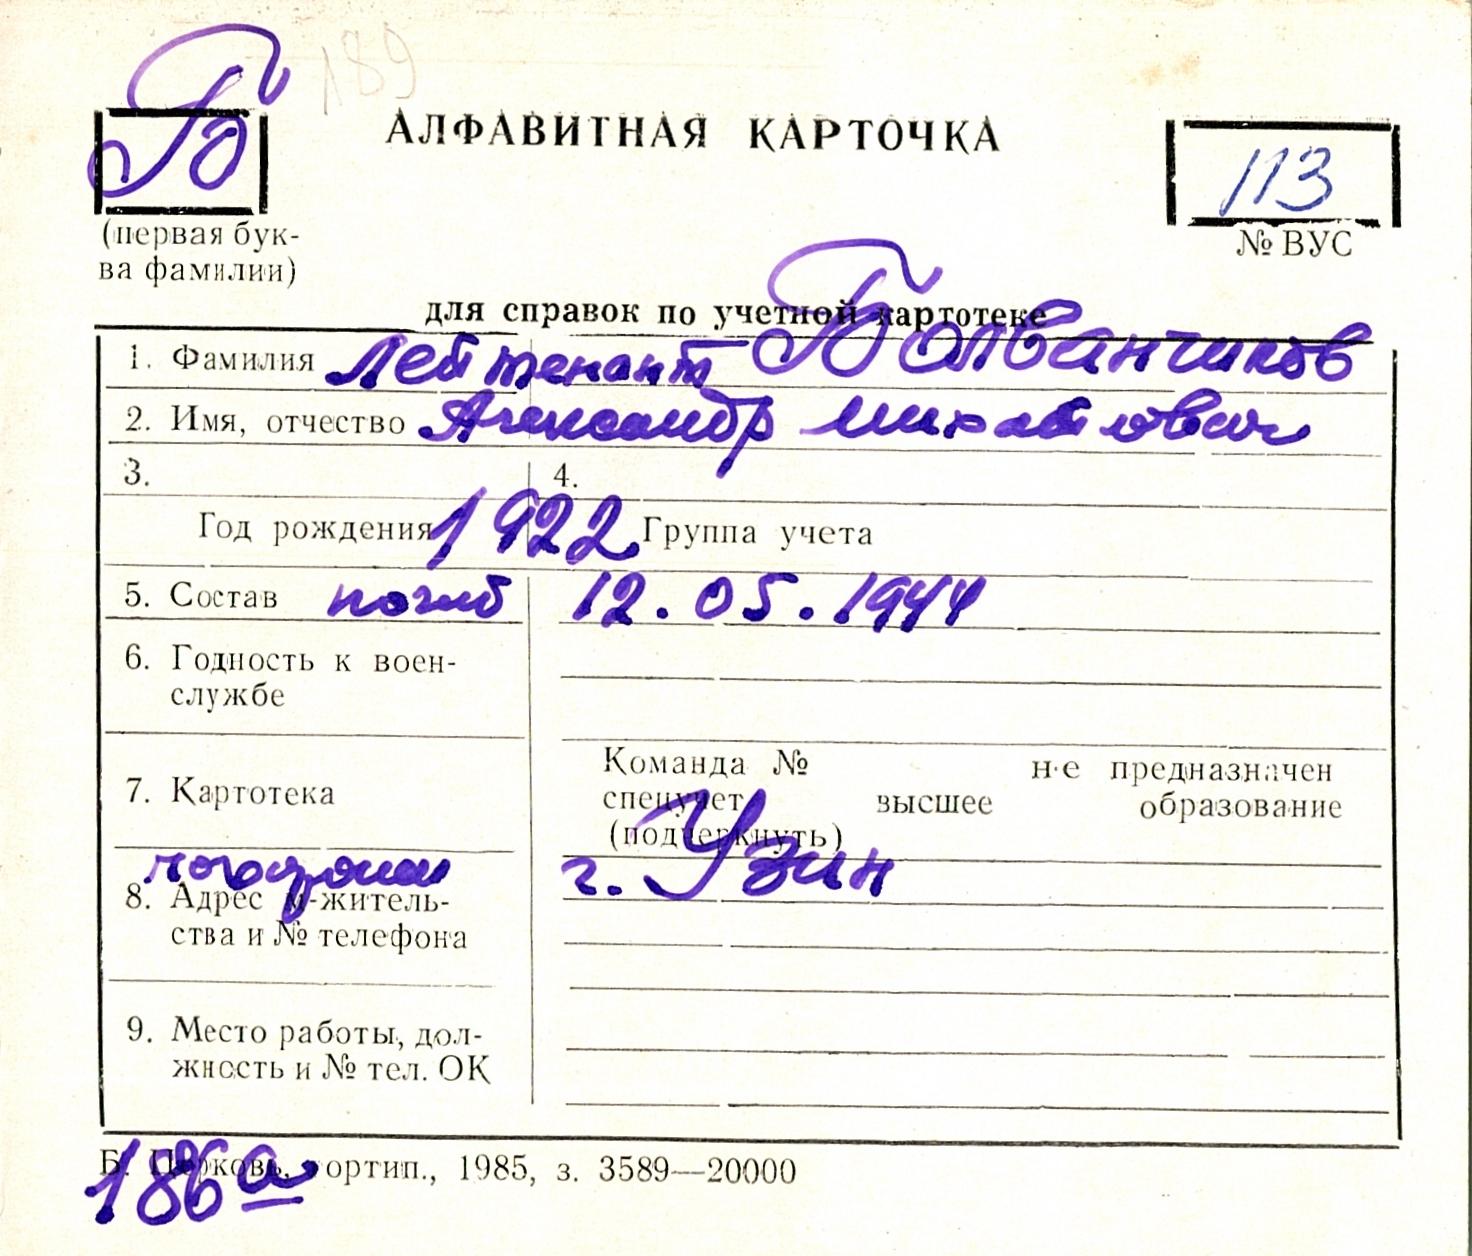 Б 189
АЛФАВИТНАЯ КАРТОЧКА
113
(первая бук-
ва фамилии)
№ ВУС
для справок по учетной картотеке
1. Фамилия Лейтенант Болванчиков
2. Имя, отчество Александр Михайлович
3. 4.
Год рождения 1922 Группа учета
5. Состав погиб 12.05.1944
6. Годность к воен-
службе
Команда № не предназначен
7. Картотека
спецучет высшее образование
(подчеркнуть)
г. Узин
8. Адрес м-житель-
ства и № телефона
9. Место работы, дол-
жность и № тел. ОК
Б. Церковь, гортип., 1985, з. 3589—20000
186а